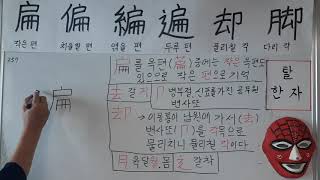 扁 偏 編 遍 却 脚
작은 편 치우칠 편 엮을 편 두루 편 물리칠 각 다리 각
257
扁를 옥편(扁) 중에는 작은 옥편도
있으므로 작은 편으로 기억
去 갈 거 卩 병부절, 신표를가진 공무원
변사또
去卩 → 이몽룡이 남원에 가서(去)
변사또(卩)을 각목으로
물리치니 물리칠 각이다.
月 육달월, 몸 去 갈거
扁
탈
한 자